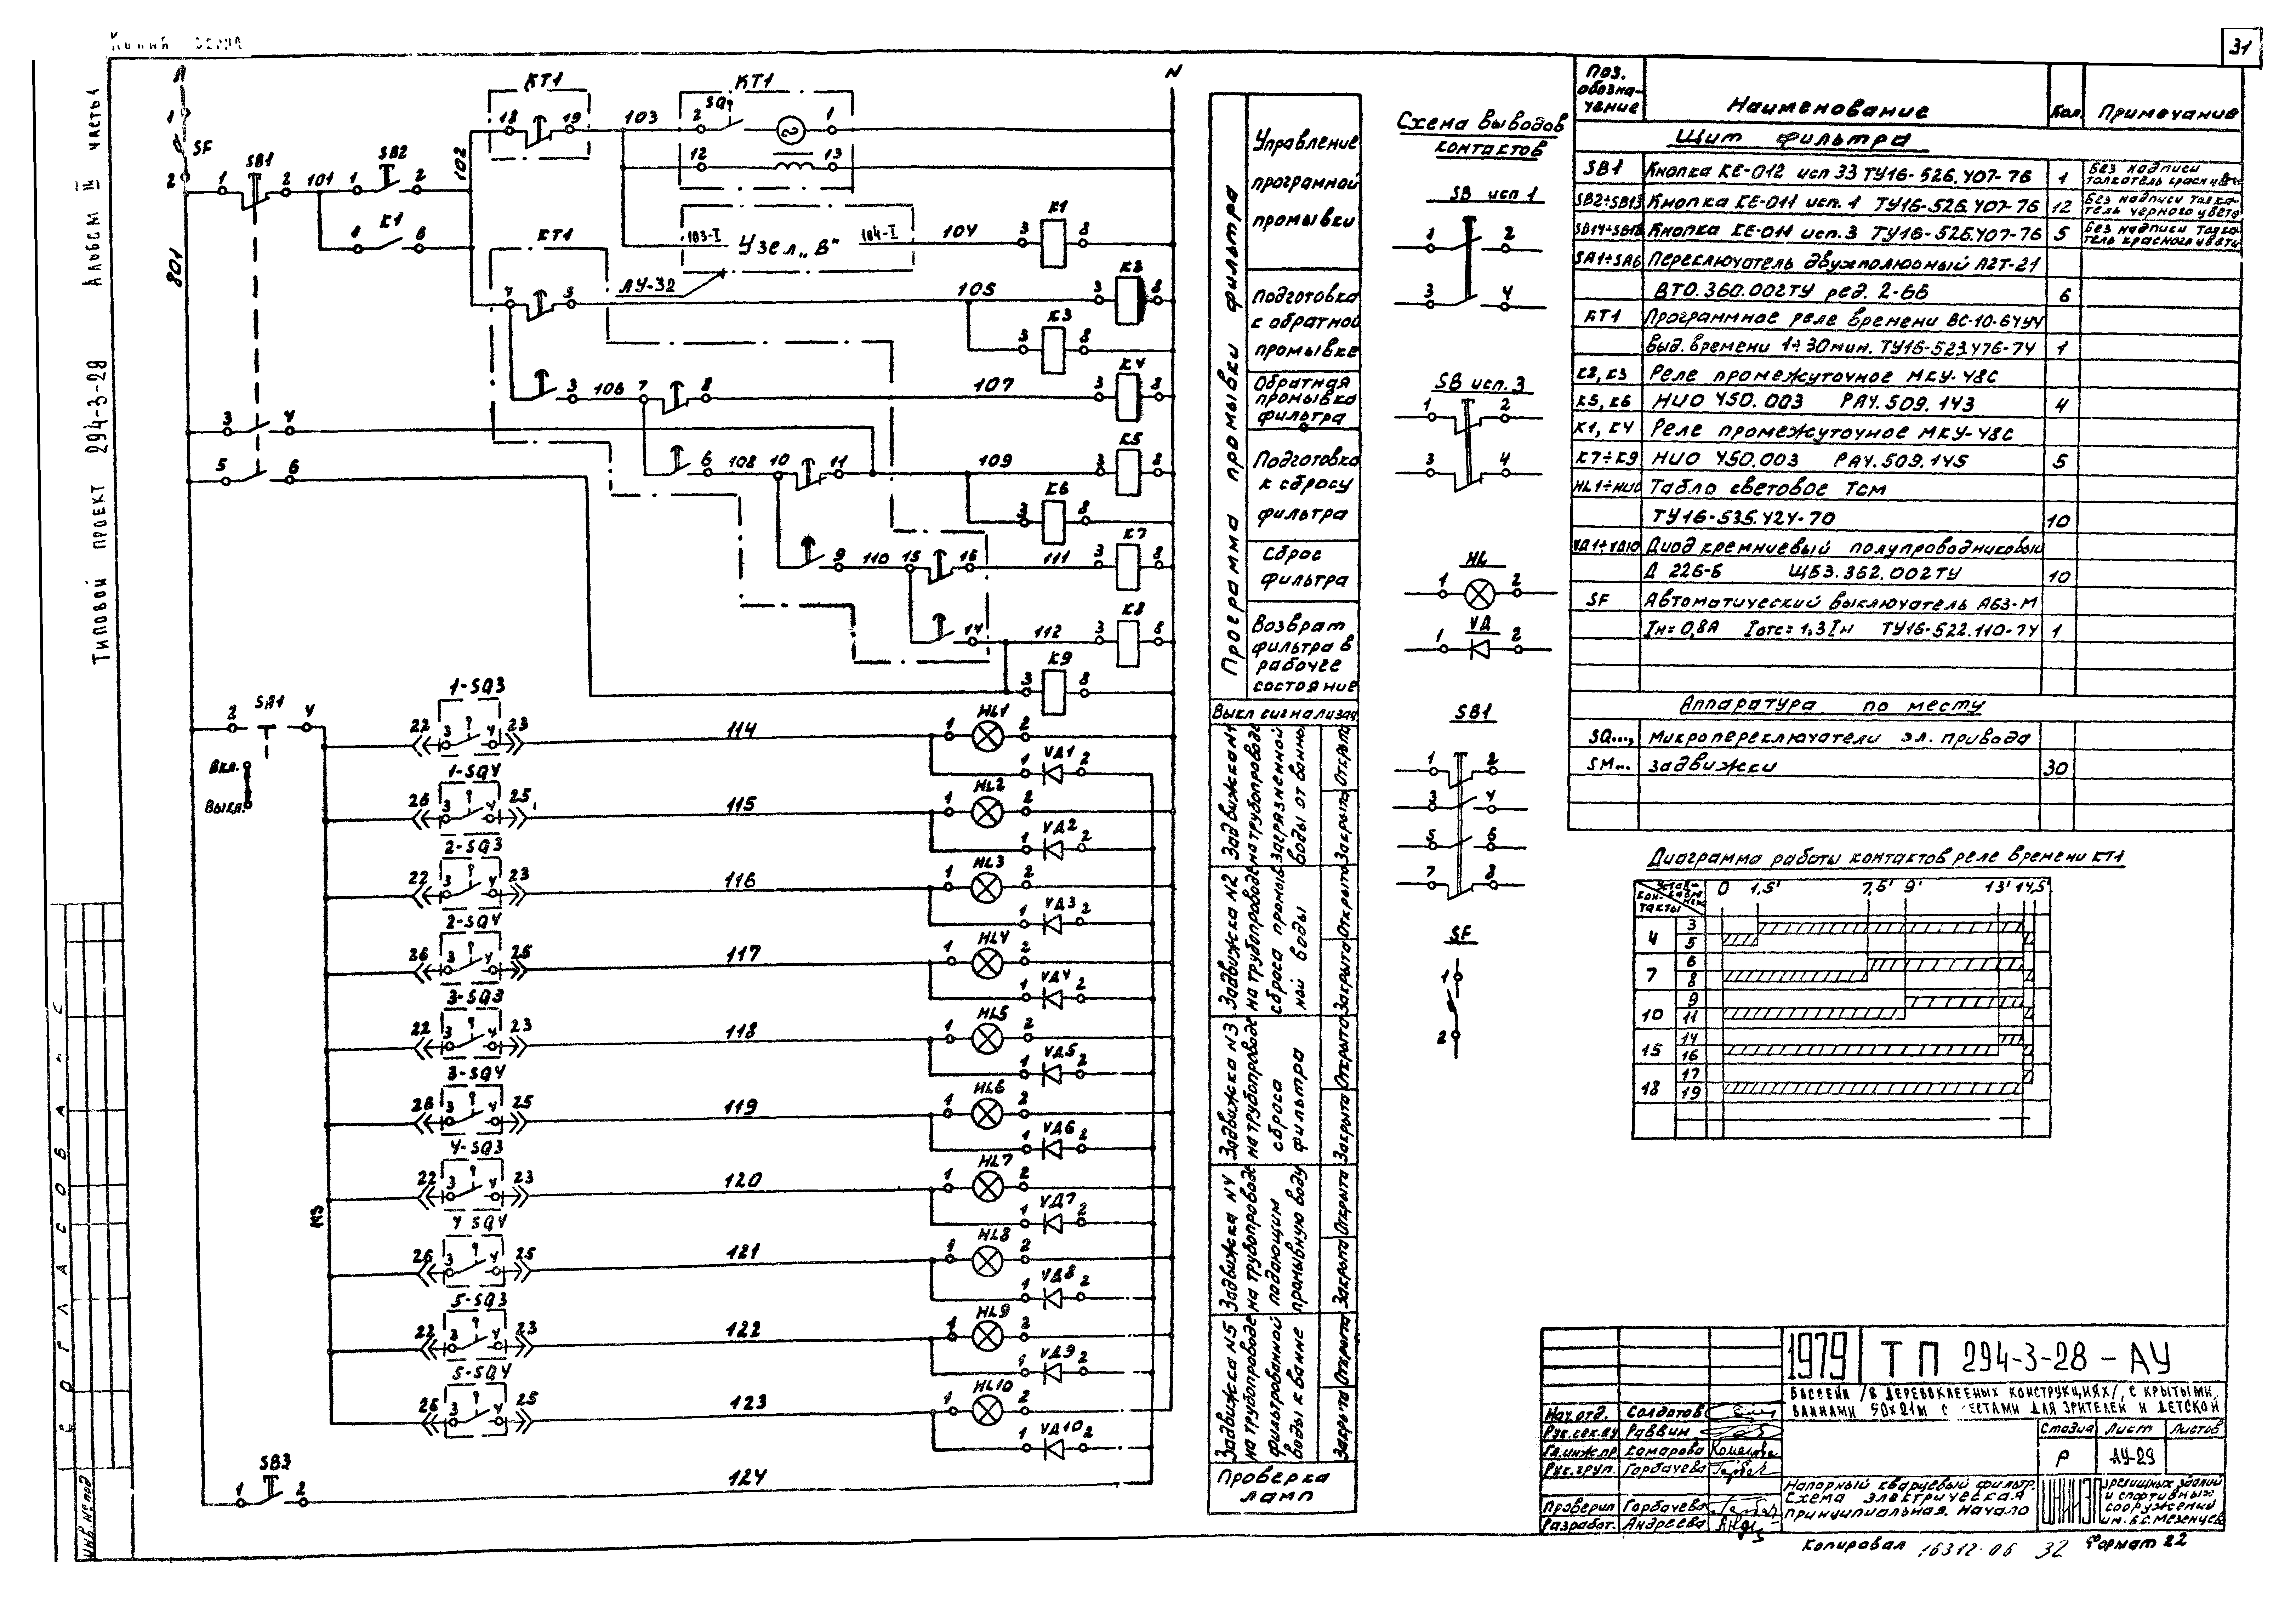 31
Альбом IV часть 1
Типовой проект 294-3-28
СОГЛАСОВАНО
Инв. № под
Л
N
1
SF
2
801
1 SB1 2
101
1 SB2 2
1 K1 6
102
KT1
18 19
103
KT1
2 SQ 1
12 13
103-I Узел „В" 104-I
АУ-32
104
3 K1 8
KT1
4 5
105
3 K2 8
3 K3 8
3 106 7 8
107
3 K4 8
3 4
5 6
6 108 10 11
109
3 K5 8
3 K6 8
9 110 15 16
111
3 K7 8
14
112
3 K8 8
3 K9 8
2 SA1 4
Вкл.
Выкл.
113
1-SQ3
22 3 4 23
114
1 HL1 2
1 VД1 2
1-SQ4
26 3 4 25
115
1 HL2 2
1 VД2 2
2-SQ3
22 3 4 23
116
1 HL3 2
1 VД3 2
2-SQ4
26 3 4 25
117
1 HL4 2
1 VД4 2
3-SQ3
22 3 4 23
118
1 HL5 2
1 VД5 2
3-SQ4
26 3 4 25
119
1 HL6 2
1 VД6 2
4-SQ3
22 3 4 23
120
1 HL7 2
1 VД7 2
4 SQ4
26 3 4 25
121
1 HL8 2
1 VД8 2
5-SQ3
22 3 4 23
122
1 HL9 2
1 VД9 2
5-SQ4
26 3 4 25
123
1 HL10 2
1 VД10 2
1 SB3 2
124
Программа промывки фильтра
Управление
програмной
промывки
Подготовка
к обратной
промывке
Обратная
промывка
фильтра
Подготовка
к сбросу
фильтра
Сброс
фильтра
Возврат
фильтра в
рабочее
состояние
Выкл сигнализац.
Задвижка N1
на трубопроводе
загрязненной
воды от ванны
Открыта
Закрыта
Задвижка N2
на трубопроводе
сброса промыв
ной воды
Открыта
Закрыта
Задвижка N3
на трубопроводе
сброса
фильтра
Открыта
Закрыта
Задвижка N4
на трубопроводе
подающим
промывную воду
Открыта
Закрыта
Задвижка N5
на трубопроводе
фильтрованной
воды к ванне
Открыта
Закрыта
Проверка
ламп
Схема выводов
контактов
SB исп 1
1 2
3 4
SB исп. 3
1 2
3 4
HL
1 2
VД
1 2
SB1
1 2
3 4
5 6
7 8
SF
1
2
Поз. обозна- чение Наименование Кол. Примечание
Щит фильтра
SB1 Кнопка КЕ-012 исп 33 ТУ16-526.407-76 1 Без надписи
толкатель красн цвет
SB2÷SB13 Кнопка КЕ-011 исп. 1 ТУ16-526.407-76 12 Без надписи толка-
тель черного цвета
SB14÷SB18 Кнопка КЕ-011 исп. 3 ТУ16-526.407-76 5 Без надписи толка-
тель красного цвета
SA1÷SA6 Переключатель двухполюсный П2Т-21
ВТО.360.002ТУ ред. 2-66 6
KT1 Программное реле времени ВС-10-64У4
выд. времени 1÷30мин. ТУ16-523.476-74 1
K2, K3 Реле промежуточное МКУ-48С
K5, K6 НИО 450.003 РА4.509.143 4
K1, K4 Реле промежуточное МКУ-48С
K7÷K9 НИО 450.003 РА4.509.145 5
HL1÷HL10 Табло световое ТСМ
ТУ16-535.424-70 10
VД1÷VД10 Диод кремниевый полупроводниковый
Д 226-Б ЩБ3.362.002ТУ 10
SF Автоматический выключатель А63-М
Iн=0,8А Iотс=1,3Iн ТУ16-522.110-74 1
Аппаратура по месту
SQ..., Микропереключатели эл. привода
SM... задвижки 30
Диаграмма работы контактов реле времени KT1
Кон-
такты
0 1,5' 7,5' 9' 13' 14,5'
4 3
5
7 6
8
10 9
11
15 14
16
18 17
19
1979 ТП 294-3-28-АУ
Бассейн /в деревоклееных конструкциях/, с крытыми
ваннами 50х21м с местами для зрителей и детской
Нач. отд. Солдатов
Рук. сек. АУ Раввин
Гл. инж. пр Комарова
Рук. груп. Горбачева
Проверил Горбачева
Разработ. Андреева
Стадия Лист Листов
Р АУ-29
Напорный кварцевый фильтр.
Схема электрическая
принципиальная. Начало
ЦНИИЭП
зрелищных зданий
и спортивных
сооружений
им. Б.С. Мезенцева
Копировал 16312-06 32 Формат 22